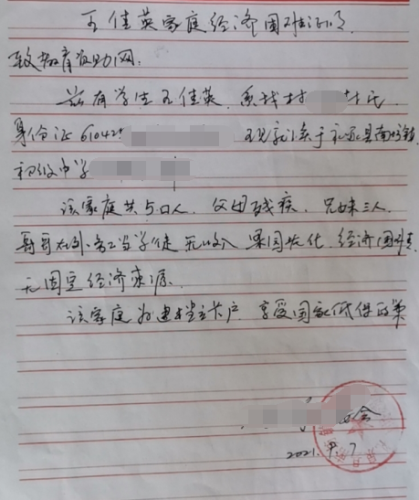 王佳英家庭经济困难证明
致教育资助网:
兹有学生王佳英,系我村 村民
身份证 61042 现就读于礼泉县南坊镇
初级中学
该家庭共5口人,父母残疾,兄妹三人,
哥哥在外务工当学徒无收入 果园老化,经济困难,
无固定经济来源.
该家庭为建档立卡户,享受国家低保政策
会
2021.9.7